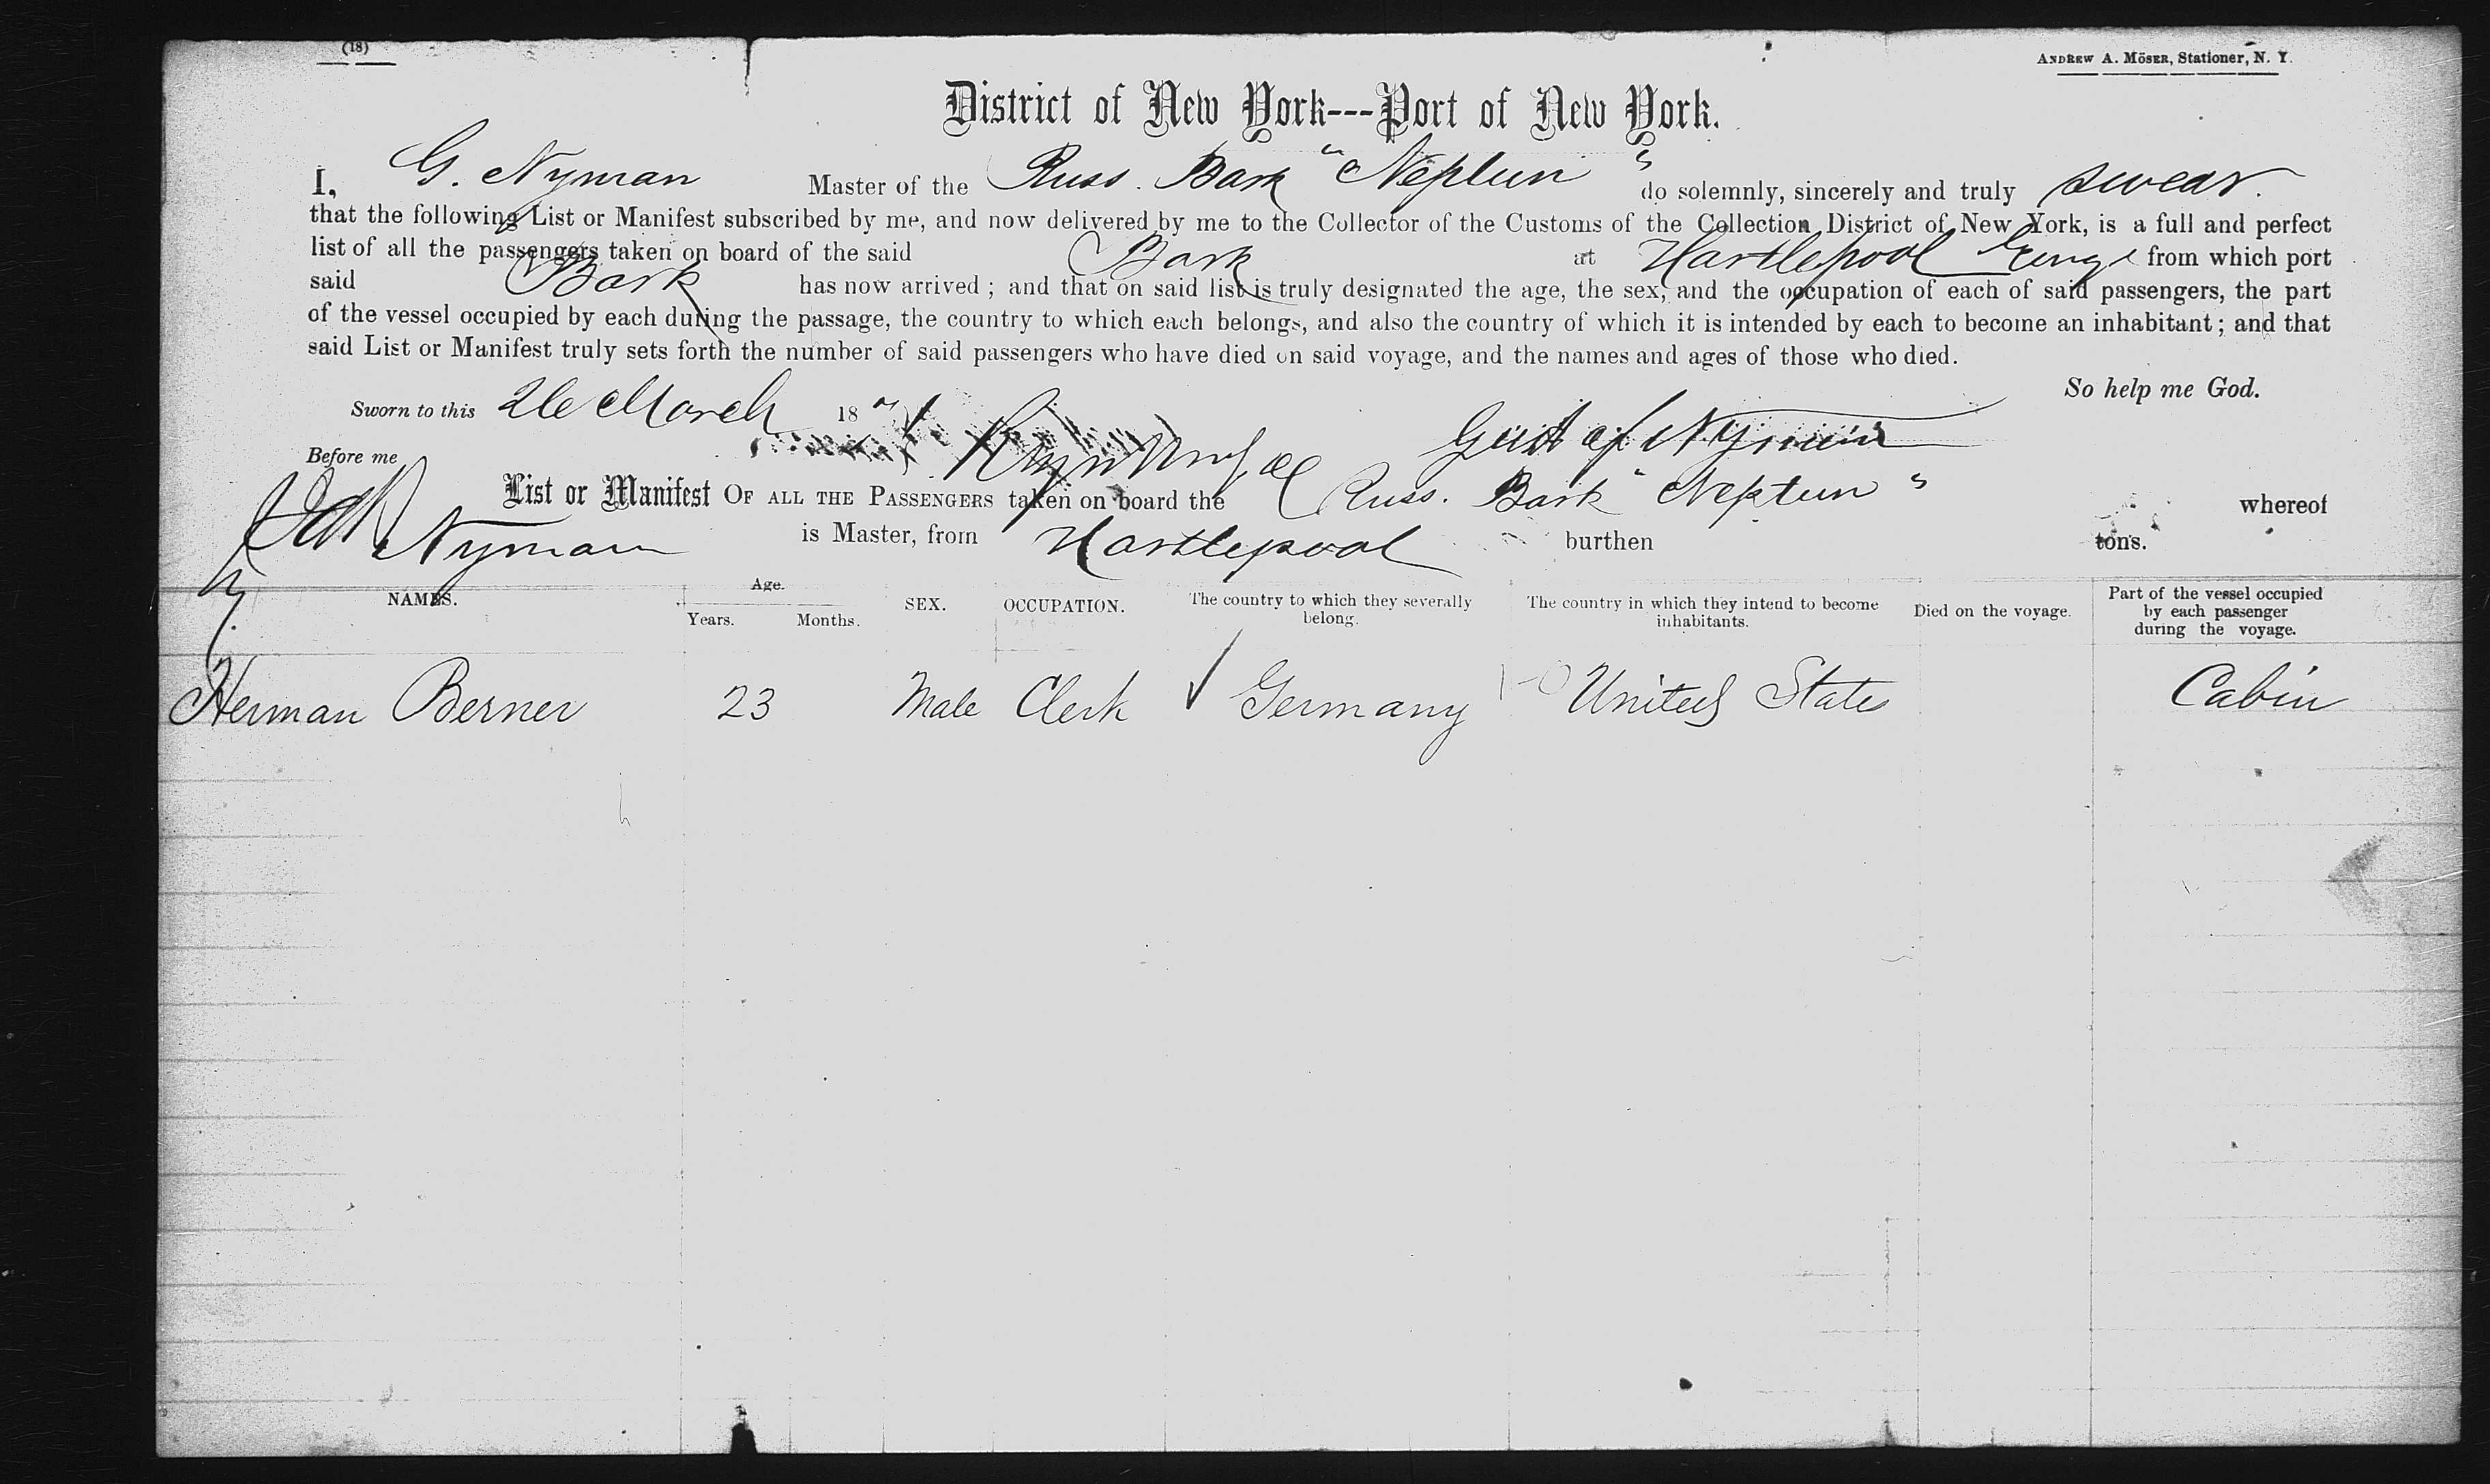 (18)
ANDREW A. MÖSER, Stationer, N. Y.
District of New York---Port of New York.
I, G. Nyman Master of the Russ. Bark "Neptun" do solemnly, sincerely and truly swear.
that the following List or Manifest subscribed by me, and now delivered by me to the Collector of the Customs of the Collection District of New York, is a full and perfect
list of all the passengers taken on board of the said Bark at Hartlepool from which port
said Bark has now arrived; and that on said list is truly designated the age, the sex, and the occupation of each of said passengers, the part
of the vessel occupied by each during the passage, the country to which each belongs, and also the country of which it is intended by each to become an inhabitant; and that
said List or Manifest truly sets forth the number of said passengers who have died on said voyage, and the names and ages of those who died.
So help me God.
Sworn to this 26 March 18
Gustaf Nyman
Before me
List or Manifest OF ALL THE PASSENGERS taken on board the Russ. Bark "Neptun" whereof
Nyman is Master, from Hartlepool burthen tons.
NAMES. Age. Years. Months. SEX. OCCUPATION. The country to which they severally belong. The country in which they intend to become inhabitants. Died on the voyage. Part of the vessel occupied by each passenger during the voyage.
Herman Berner 23 Male Clerk ✓ Germany United States Cabin